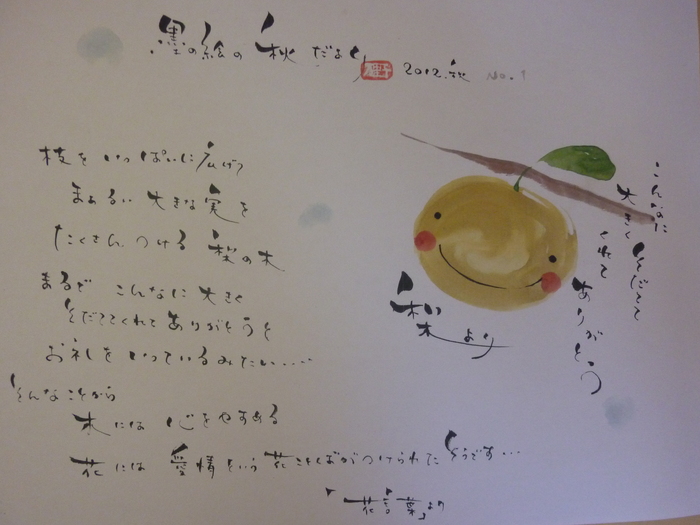 墨の絵の秋だより
2012.秋 No.1
枝をいっぱいに広げて
まあるい大きな実を
たくさんつける梨の木
まるでこんなに大きく
そだててくれてありがとうと
お礼をいっているみたい・・・・
そんなことから
木には心をやすめる
花には愛情という花ことばがつけられたそうです・・・
「花言葉」より
こんなに
大きくそだてて
くれて
ありがとう
梨より